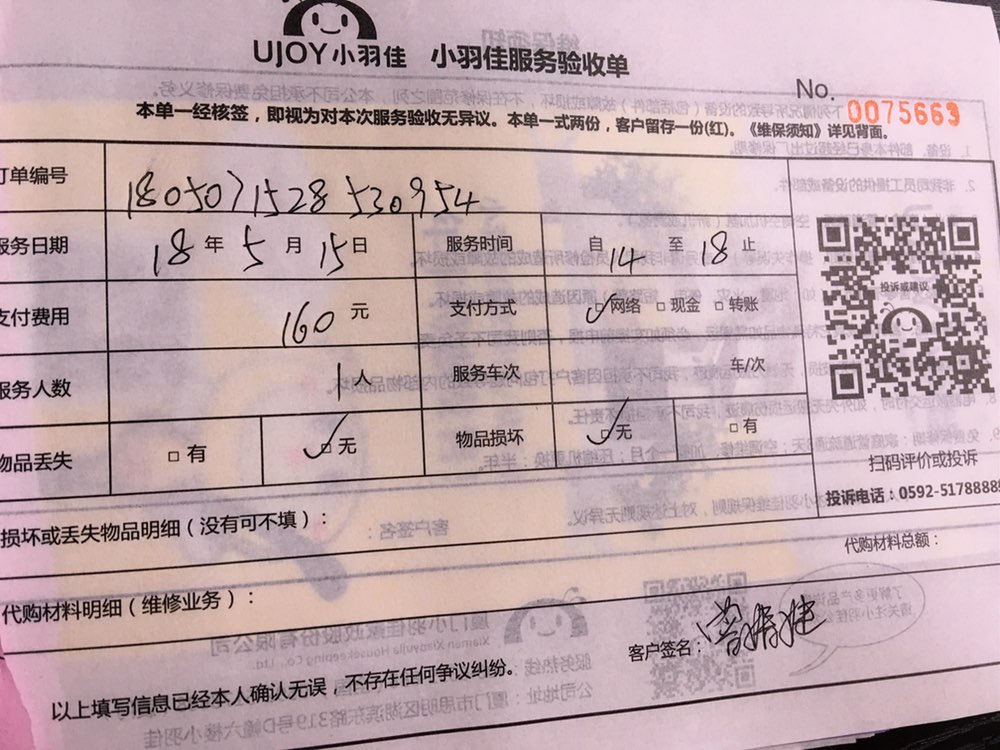 UJOY小羽佳 小羽佳服务验收单
No. 0075663
本单一经核签，即视为对本次服务验收无异议。本单一式两份，客户留存一份(红)。《维保须知》详见背面。
订单编号 180507152853095​4
服务日期 18年5月15日 服务时间 自14至18止
支付费用 160元 支付方式 网络 □现金 □转账
服务人数 1人 服务车次 车/次
物品丢失 □有 □无 物品损坏 □无 □有
投诉或建议
扫码评价或投诉
投诉电话：0592-5178888
损坏或丢失物品明细（没有可不填）：
代购材料总额：
代购材料明细（维修业务）：
客户签名：
以上填写信息已经本人确认无误，不存在任何争议纠纷。